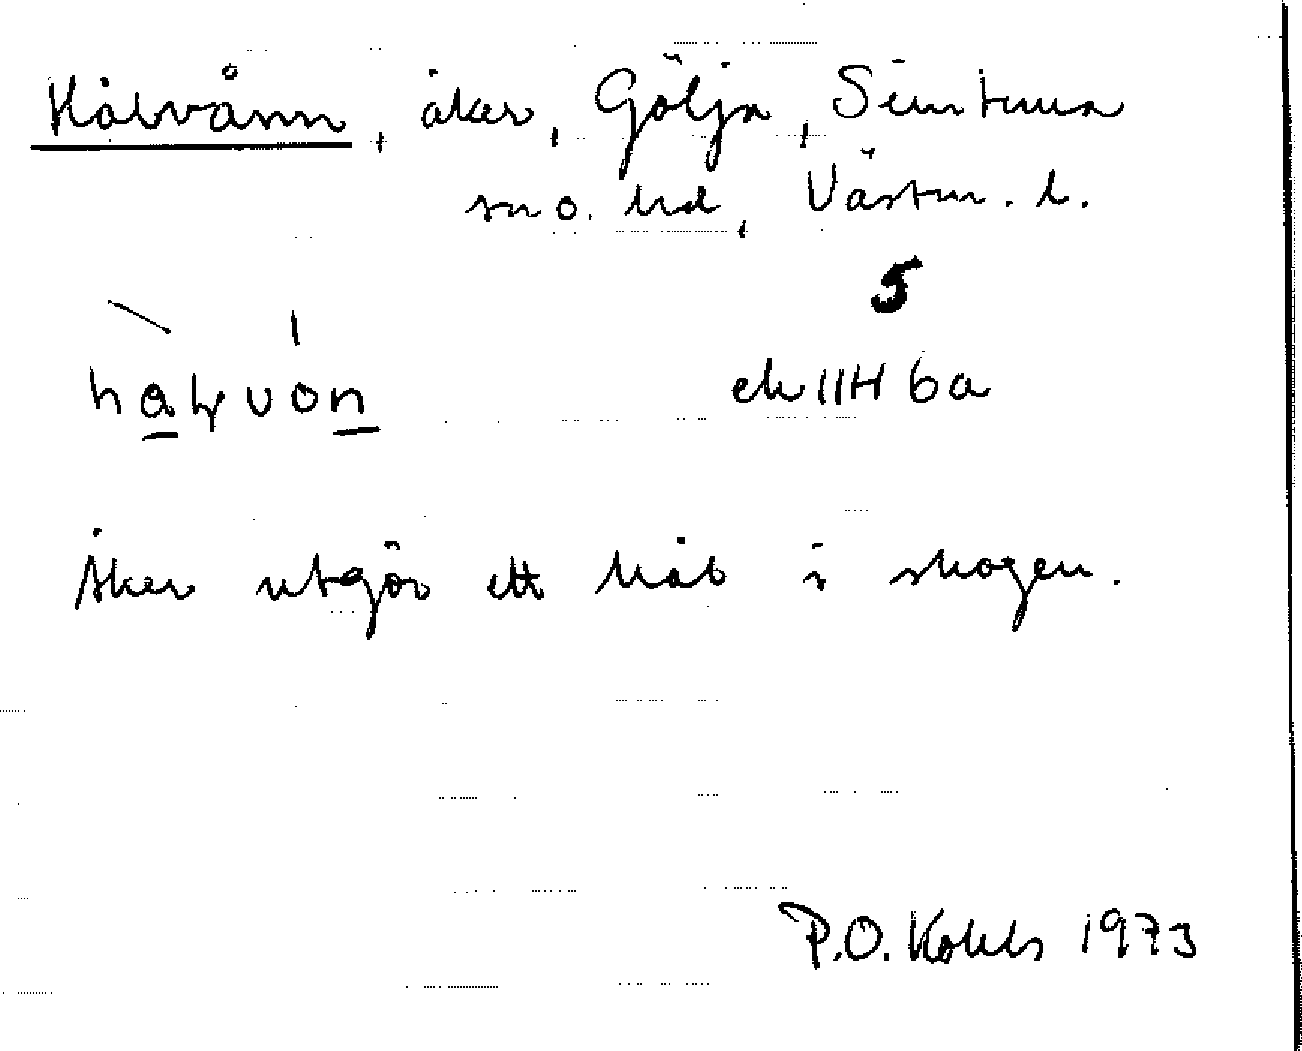 Hålvånn, åker, Gölja, Simtuna
sn o. hd, Västm. l.
5
hàḷvón
ek 11H 6a
Åker utgör ett hål i skogen.
P.O. 1973